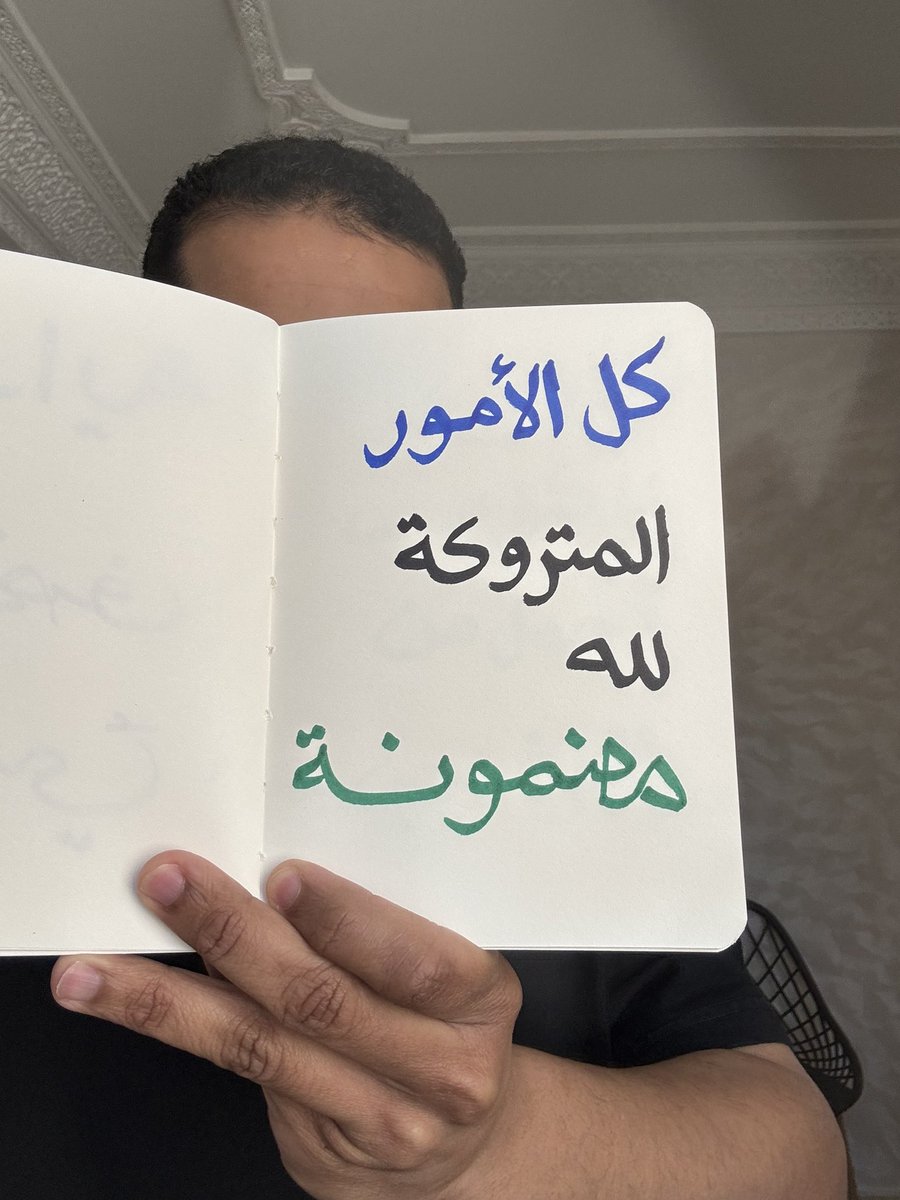 كل الأمور
المتروكة
لله
مضمونة